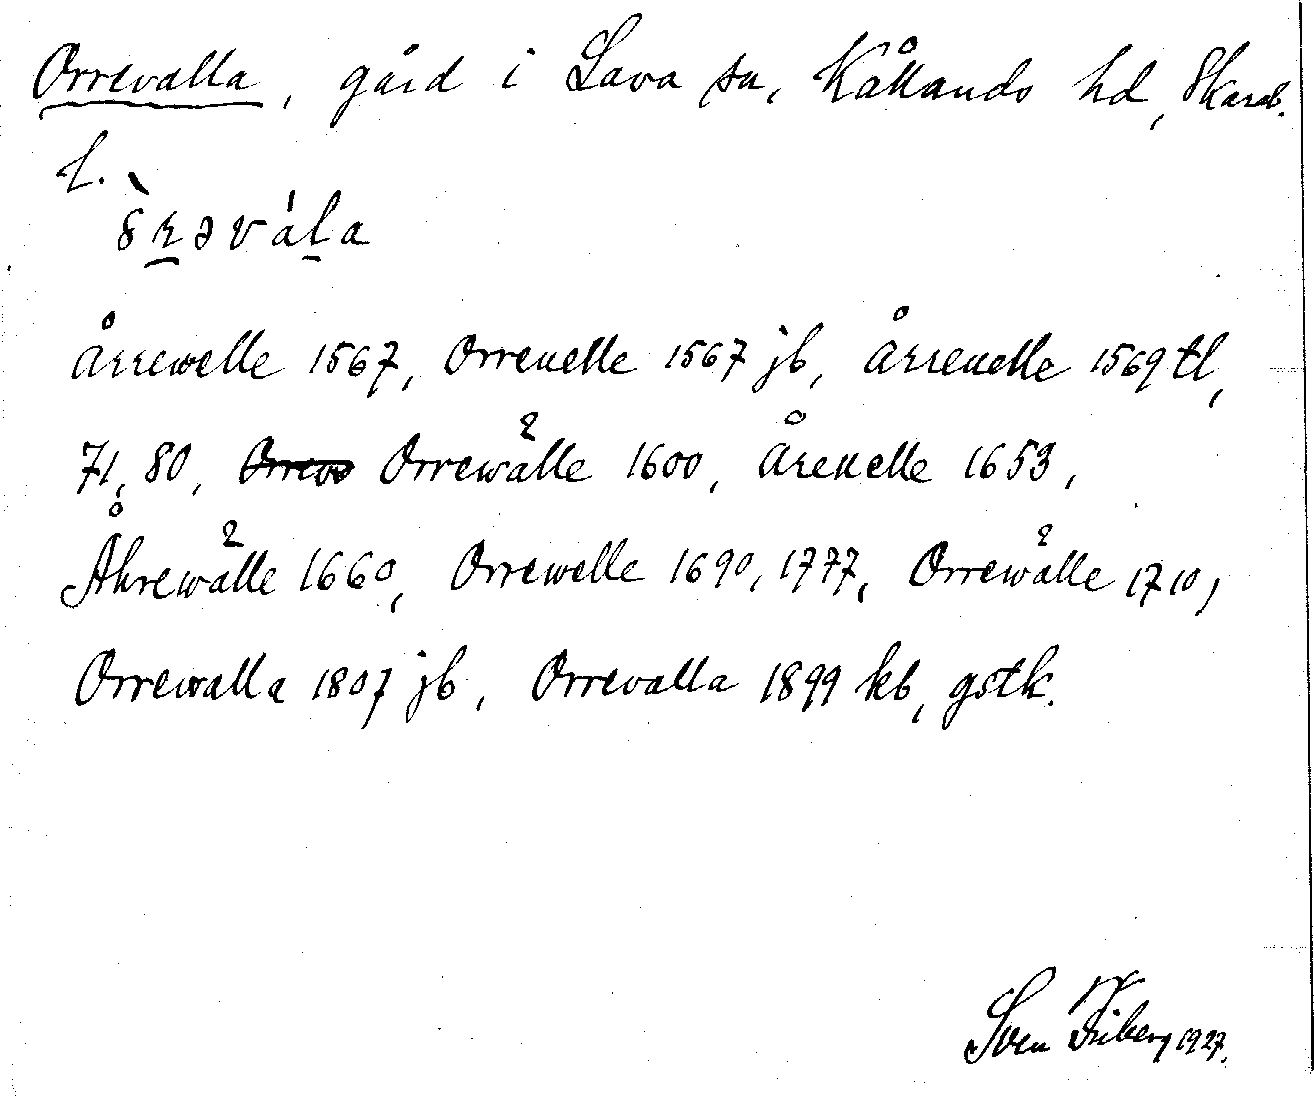 Orrevalla, gård i Lava sn, Kållands hd, Skarab.
l.
Årrewelle 1567, Orreuelle 1567 jb, Årreuelle 1569 tl,
71, 80, Orrewälle 1600, Åreuelle 1653,
Åhrewälle 1660, Orrewelle 1690, 1777, Orrewälle 1710,
Orrewalla 1807 jb, Orrevalla 1899 kb, gstk.
Sven Friberg 1927.